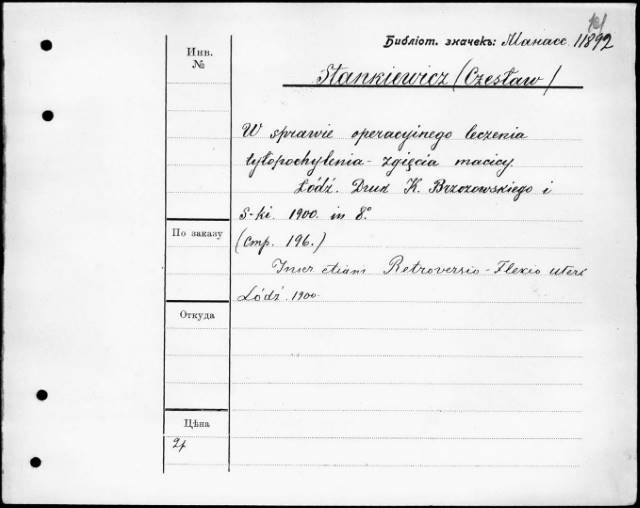 Библіот. значекъ: Манасс. 11892
Инв.
№
Stankiewicz (Czesław)
W sprawie operacyjnego leczenia
tyłopochylenia - zgięcia macicy.
Łódź. Druk K. Brzozowskiego i
S-ki. 1900. in 8.º
По заказу
(стр. 196.)
Inscr etiam Retroversio-Flexio uteri
Łódź. 1900.
Откуда
Цѣна